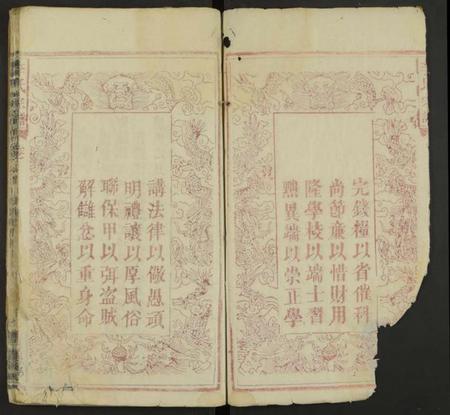 完錢糧以省催科
尚節廉以惜財用
隆學校以端士習
黜異端以崇正學
講法律以儆愚頑
明禮讓以厚風俗
聯保甲以弭盗賊
解讎忿以重身命